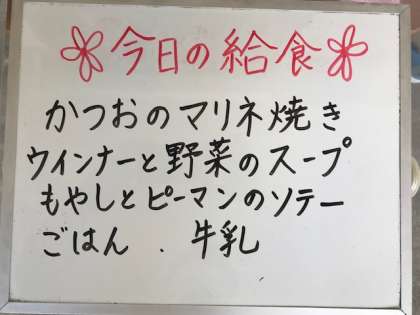 今日の給食
かつおのマリネ焼き
ウインナーと野菜のスープ
もやしとピーマンのソテー
ごはん . 牛乳